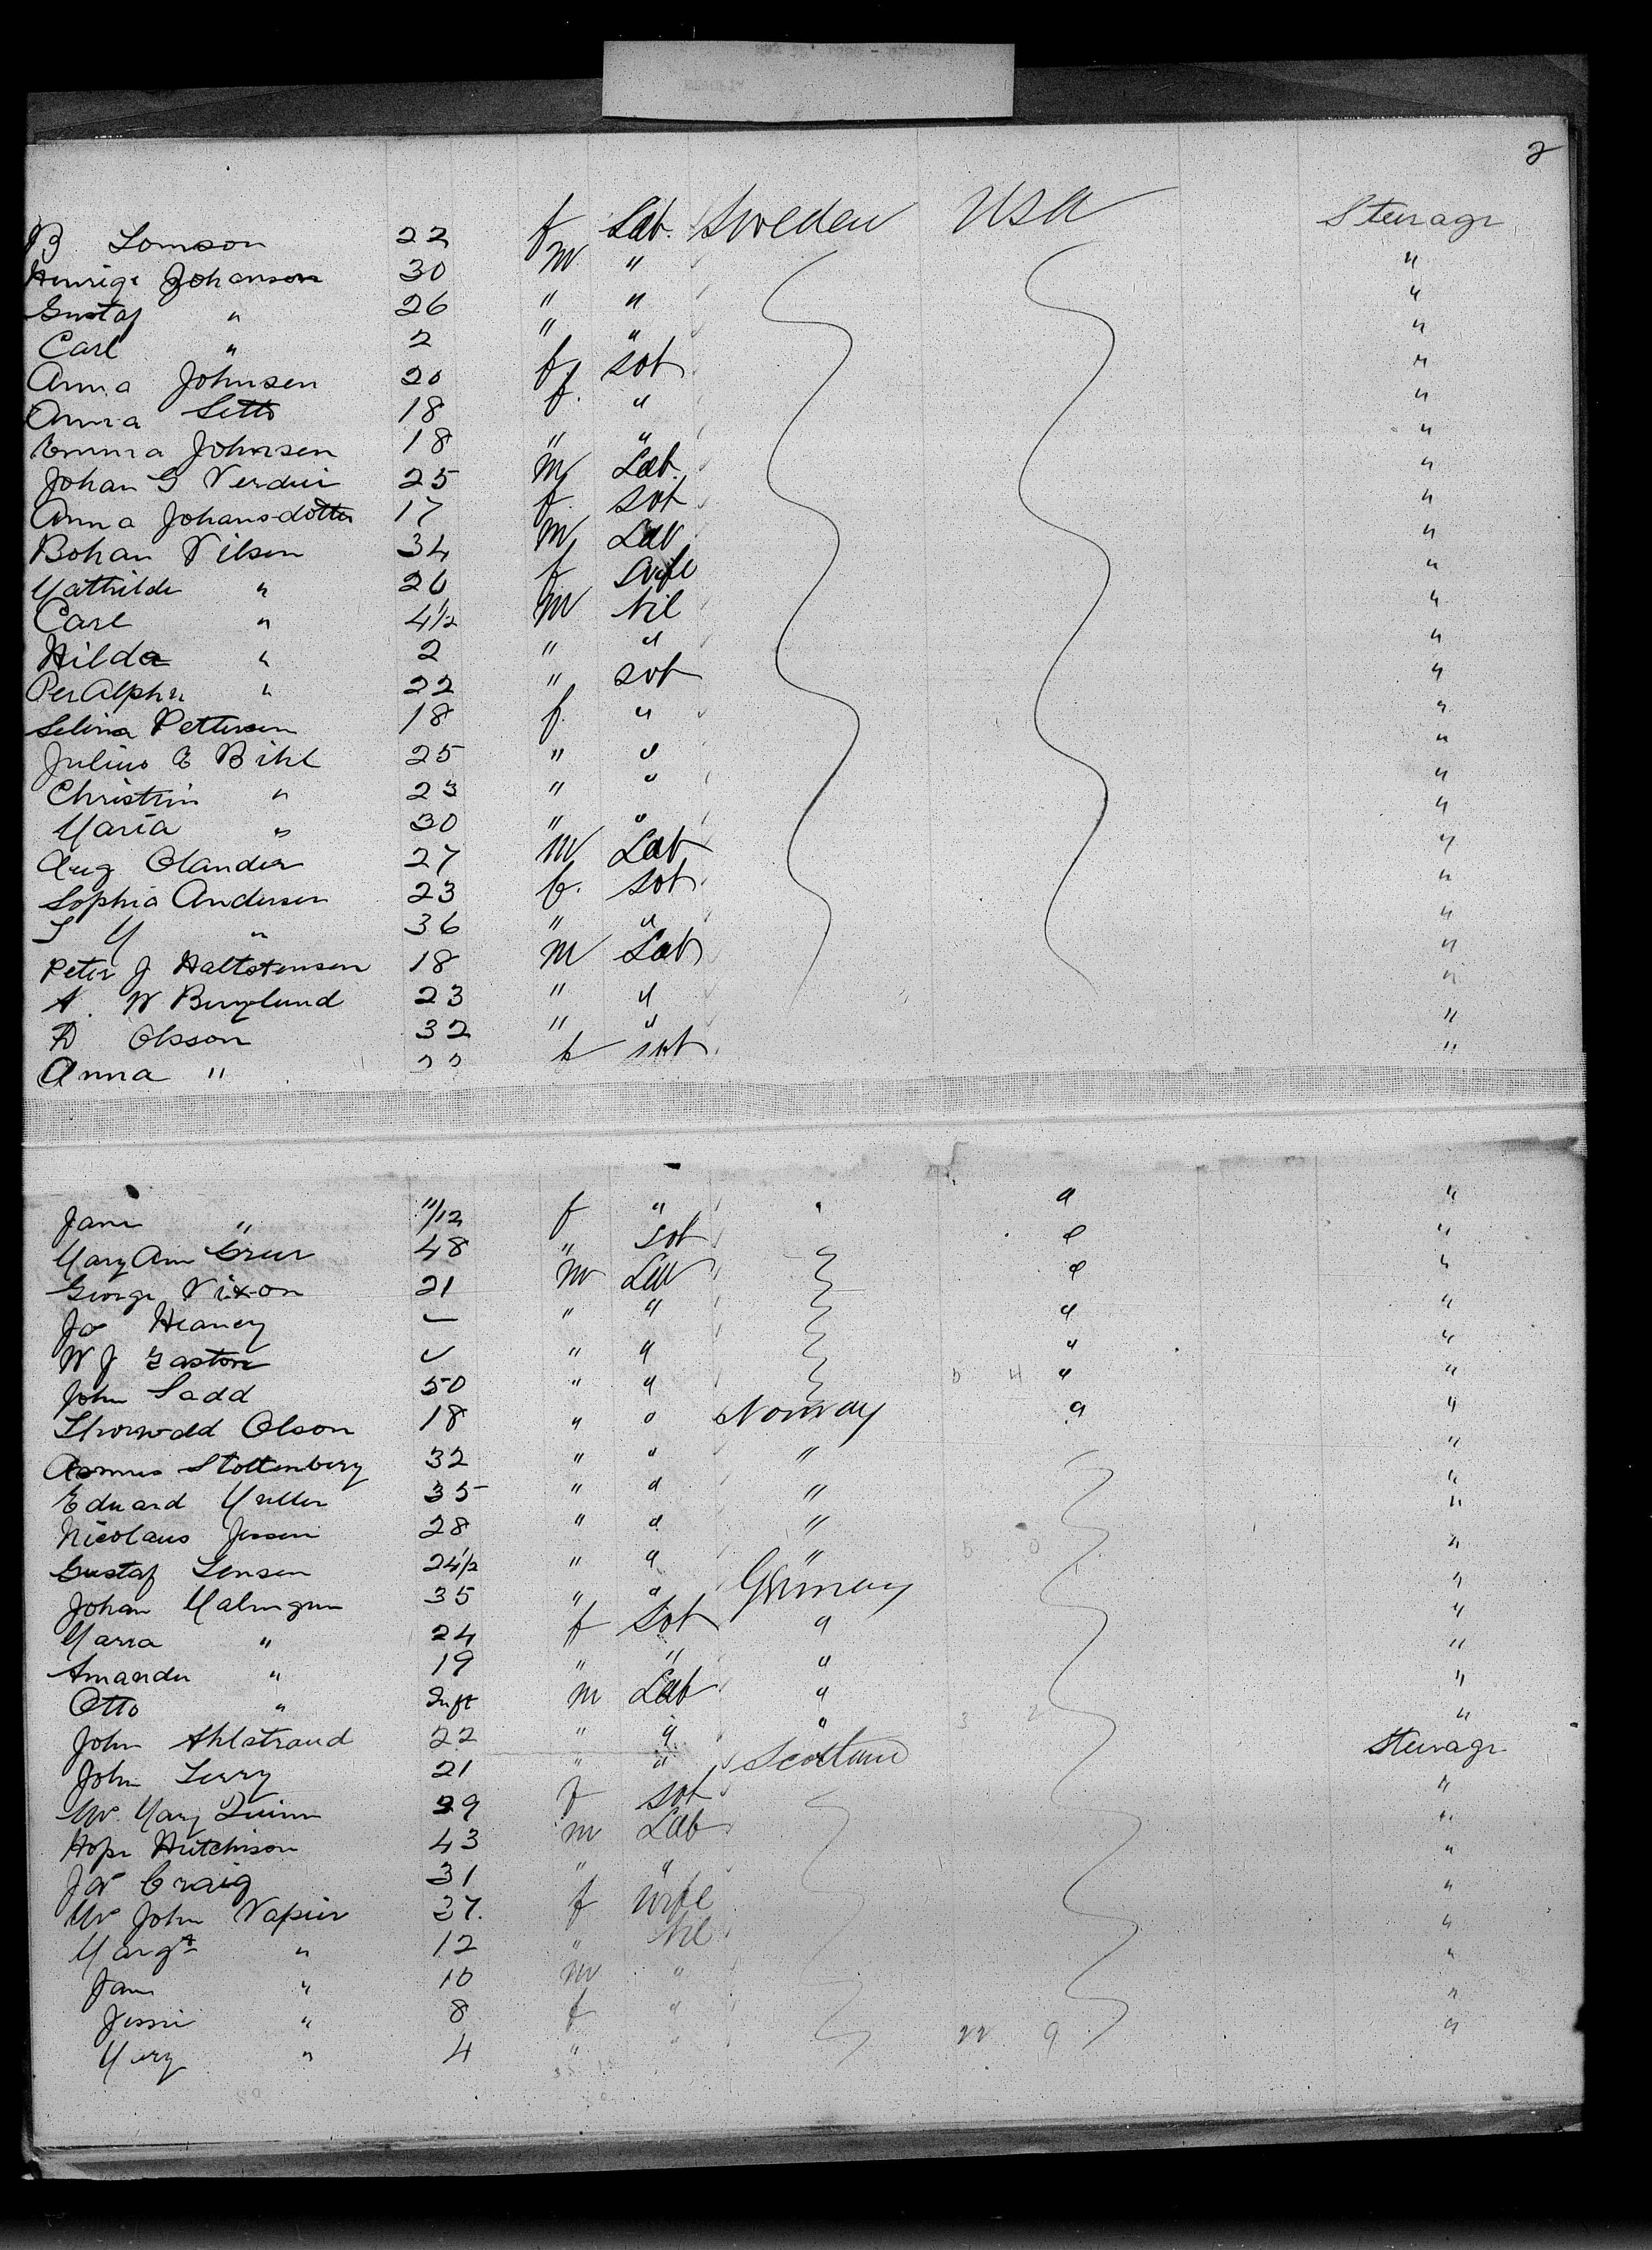 2
B Lomson 22 f Lab. Sweden USA Steerage
Henrige Johanson 30 m " "
Gustaf " 26 " " "
Carl " 2 " " "
Anna Johnsen 20 f sot "
Anna Setts 18 f. " "
Emma Johnsen 18 " " "
Johan G Verdier 25 m Lab. "
Anna Johansdotter 17 f sot "
Bohan Nilsen 34 m Lab "
Mathilde " 26 f wife "
Carl " 4 1/2 m Nil "
Hilda " 2 " " "
Per Alphn " 22 " sot "
Selina Pettersen 18 f. " "
Julius E Bihl 25 " " "
Christin " 23 " " "
Maria " 30 " " "
Aug Olander 27 m Lab "
Sophia Andersen 23 f. sot "
S M " 36 " " "
Peter J Haltstensen 18 m Lab "
A. W Berglund 23 " " "
D Olsson 32 " " "
Anna " f sot "
Jane " 11/12 f " " "
Mary Ann Greer 48 " sot " "
George Nixon 21 m Lab " "
Jas Heaney " " " "
W J Easton " " " "
John Ladd 50 " " " "
Thorwald Olson 18 " " Norway " "
Asmus Stoltenberg 32 " " " "
Eduard Muller 35 " " " "
Nicolaus Jessen 28 " " " "
Gustaf Jensen 24 1/2 " " " "
Johan Malmgren 35 " " Germany "
Maria " 24 f Sot " "
Amanda " 19 " " " "
Otto " Inft m Lab " "
John Ahlstrand 22 " " " "
John Terry 21 " " Scotland Steerage
Mrs Mary Quinn 29 f sot "
Hope Hutchison 43 m Lab "
Jas Craig 31 " " "
Mrs John Napier 37. f wife "
Margt " 12 " Nil "
Jam " 10 m " "
Jessie " 8 f " "
Mary " 4 " " "